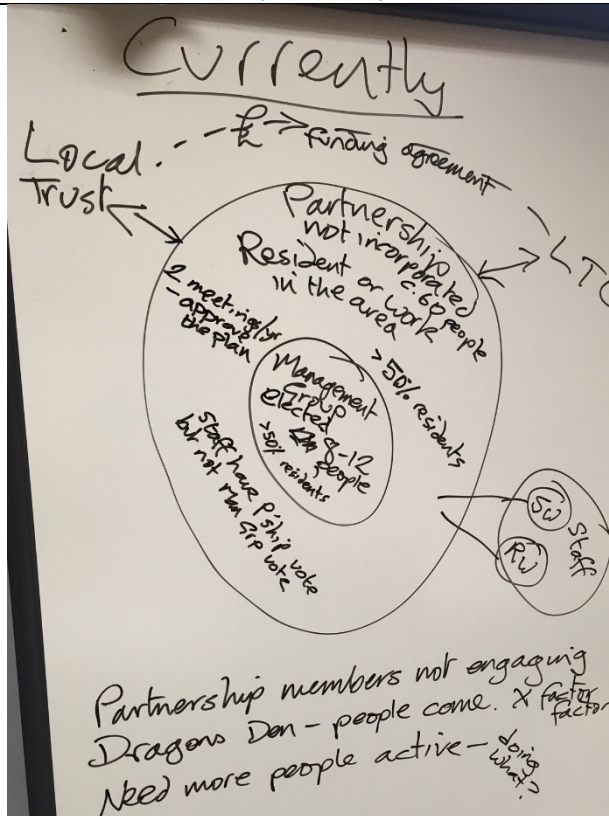 Currently
Local
Trust
£ → funding agreement
LTO
Partnership
not incorporated
c. 60 people
Resident or work
in the area
2 meetings/yr
- approve
the plan
>50% residents
Management
Group
elected
8-12
people
>50% residents
Staff have p'ship vote
but not Man Grp vote
SW
RW
Staff
Partnership members not engaging
Dragons Den - people come. X factor
factor
Need more people active - doing
what?